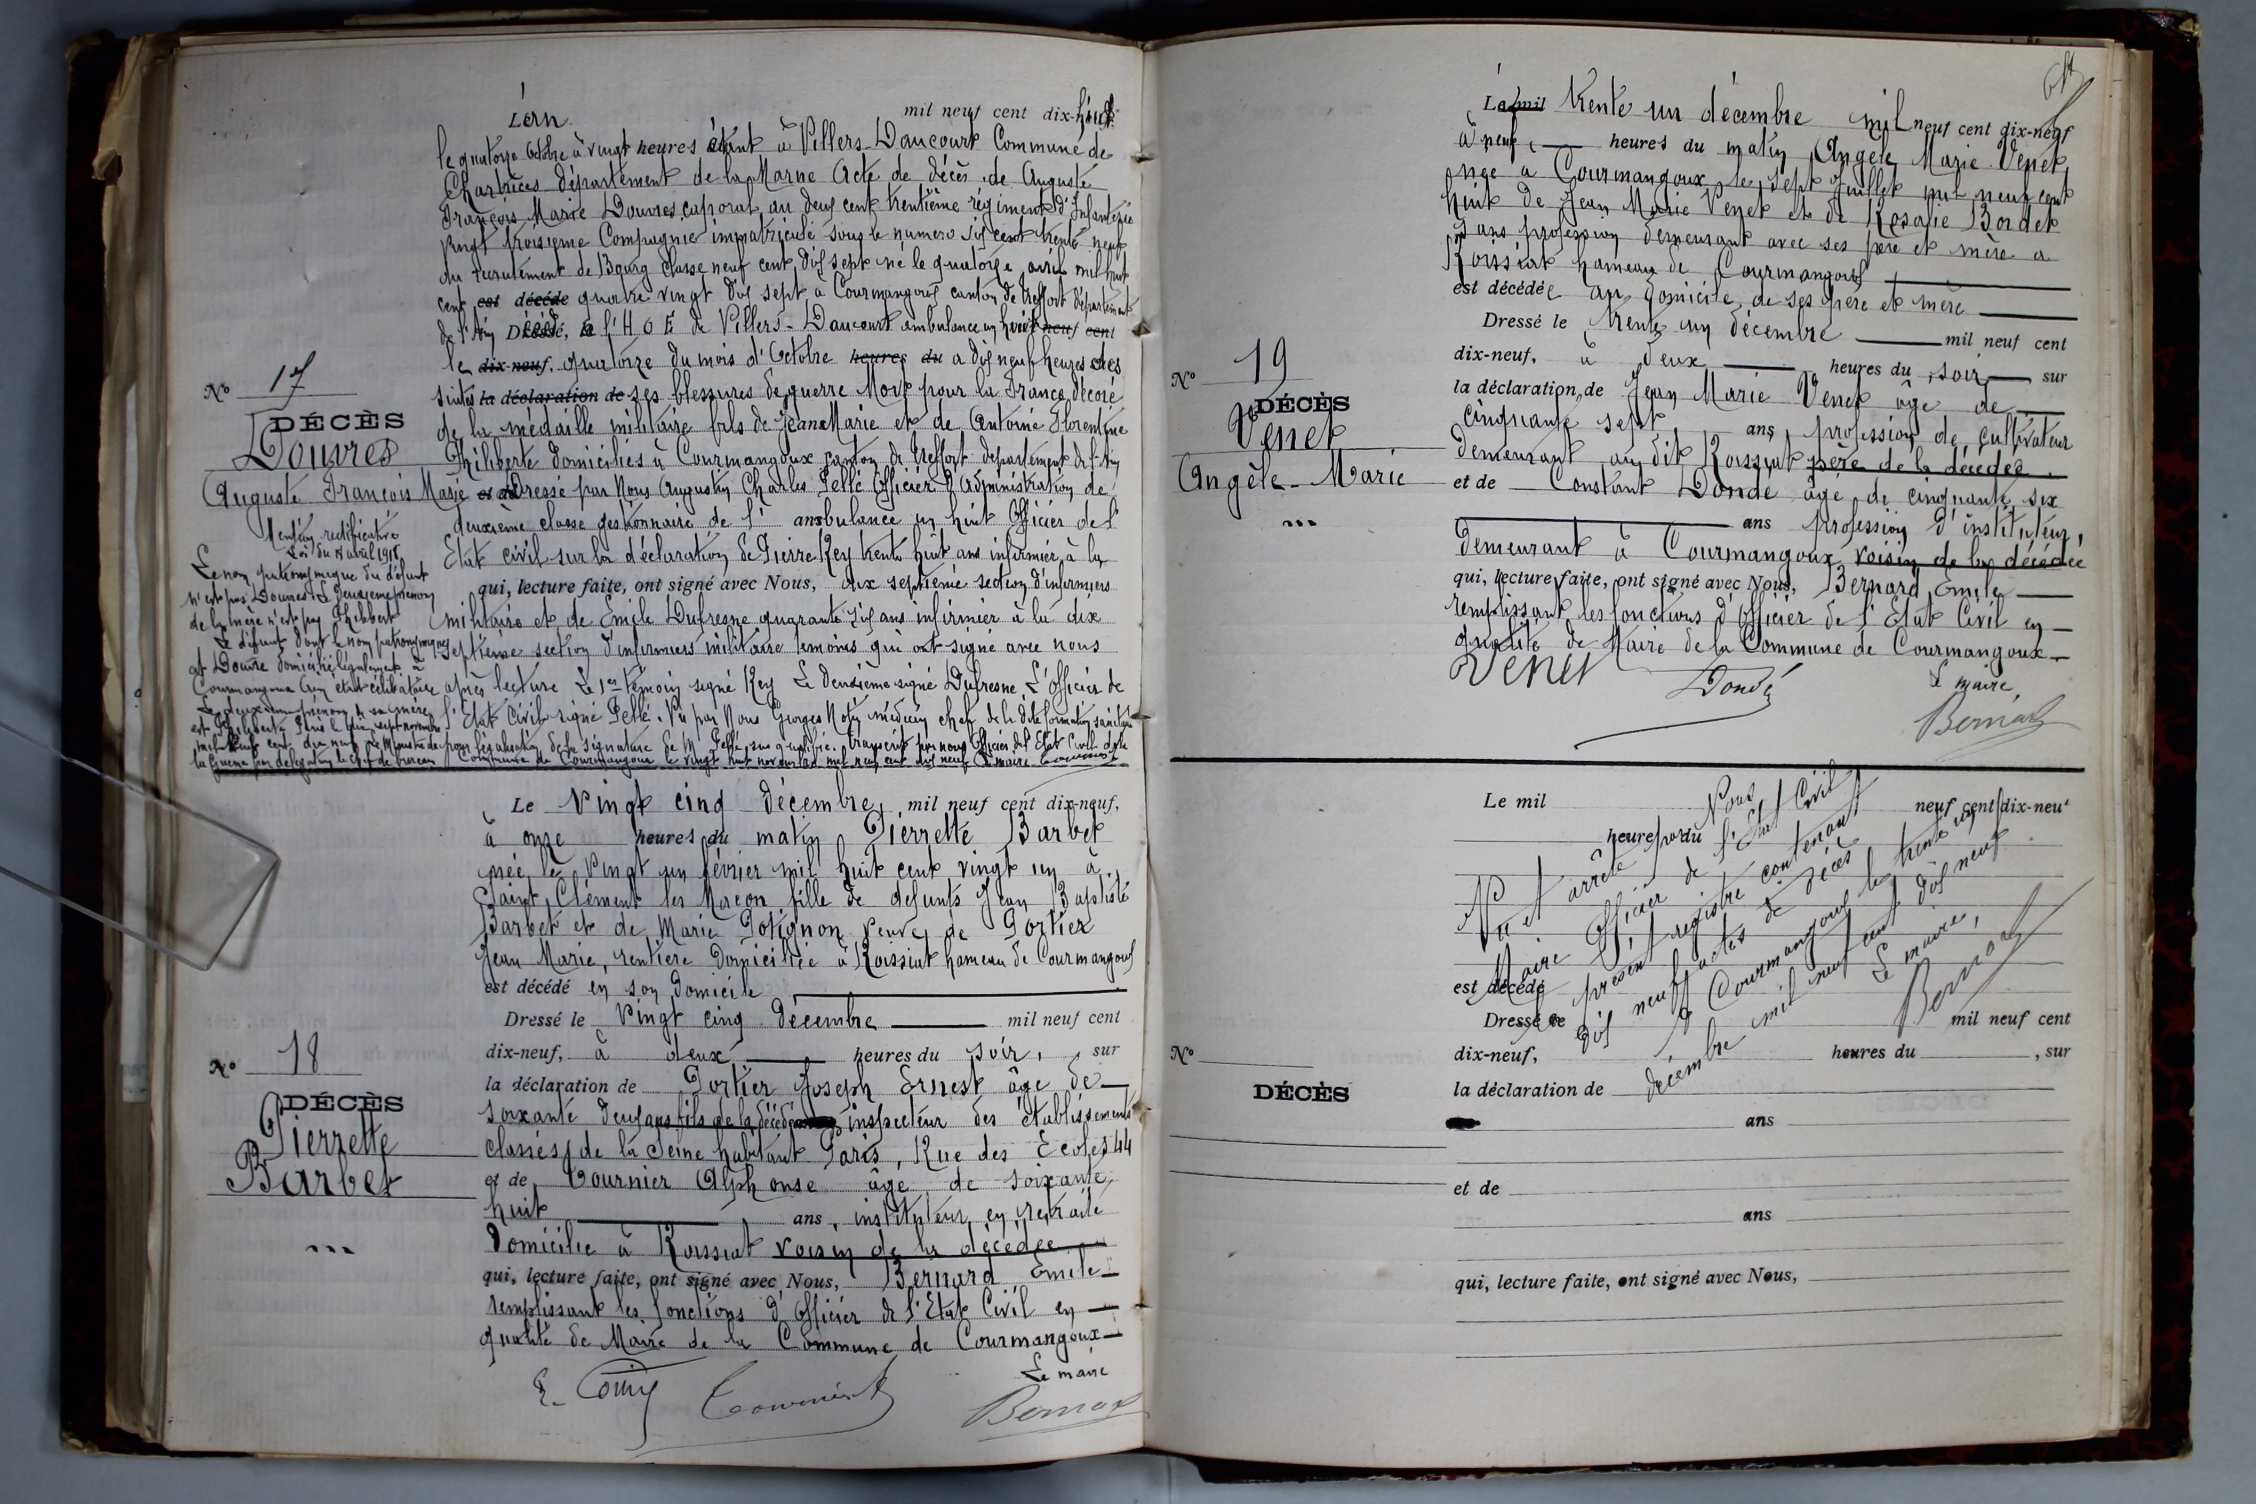 L'an mil neuf cent dix-huit
le quatorze Octobre à vingt heures étant à Villers-Daucourt Commune de
Chatrices département de la Marne Acte de décès de Auguste
François Marie Douvres caporal au deux cent trentième régiment d'Infanterie
vingt troisième Compagnie immatriculé sous le numéro six cent trente neuf
du recrutement de Bourg classe neuf cent dix sept né le quatorze avril mil huit
cent est décédé quatre vingt dix sept à Courmangoux canton de Treffort département
de l'Ain Décédé, à l'H O E de Villers-Daucourt ambulance un huit neuf cent
le dix-neuf. quatorze du mois d'Octobre heures du a dix neuf heures des
suites la déclaration de ses blessures de guerre Mort pour la France, décoré
de la médaille militaire fils de Jean Marie et de Antoine Florentine
Philiberte domiciliés à Courmangoux canton de Treffort departement de l'Ain
et de Dressé par Nous Augustin Charles Pellé Officier d'Administration de
deuxième classe gestionnaire de l' ambulance un huit Officier de l'
Etat civil sur la déclaration de Pierre Rey trente huit ans infirmier à la
qui, lecture faite, ont signé avec Nous, dix septième section d'infirmiers
militaire et de Emile Dufresne quarante six ans infirmier à la dix
septième section d'infirmiers militaire temoins qui ont signé avec nous
après lecture Le 1er témoin signé Rey Le deuxième signé Dufresne L'Officier de
l'Etat civil signé Pellé. Vu par Nous Georges médecin chef de la dite formation sanitaire
pour légalisation de la signature de M. Pellé, sus qualifié. Transcrit par nous Officier de l'Etat Civil de la
Commune de Courmangoux le vingt huit novembre mil neuf cent dix neuf Le maire
No 17
DÉCÈS
Douvres
Auguste François Marie
Mention rectificative
Loi du 18 avril 1918
Le nom patronymique du défunt
n'est pas Douvres. Le deuxieme prenom
de la mère n'est pas Philibert
Le défunt dont le nom patronymique
est Douvre domicilié légalement à
Courmangoux Ain était célibataire
Le deuxieme prenom de sa mère
est Philiberte Paris le sept novembre
mil neuf cent dix neuf Le Ministre de
la Guerre par délégation le chef de bureau
Le vingt cinq décembre mil neuf cent dix-neuf,
à onze heures du matin Pierrette Barbet
née le vingt un février mil huit cent vingt un à
Saint Clément les Macon fille de defunts Jean Baptiste
Barbet et de Marie Potignon veuve de Portier
Jean Marie, rentière Domiciliée à Roissiat hameau de Courmangoux
est décédé en son domicile
Dressé le vingt cinq décembre mil neuf cent
dix-neuf, à deux heures du soir, sur
la déclaration de Portier Joseph Ernest âgé de
soixante deux ans fils de la décédée inspecteur des établissements
classés de la Seine habitant Paris, Rue des Ecoles 44
et de Tournier Alphonse âgé de soixante
huit ans, instituteur en retraite
domicilié à Roissiat voisin de la décédée
qui, lecture faite, ont signé avec Nous, Bernard Emile
remplissant les fonctions d'Officier de l'Etat Civil en
qualité de Maire de la Commune de Courmangoux
Le maire
Tournier
Bernard
No 18
DÉCÈS
Pierrette
Barbet
Le mil trente un décembre mil neuf cent dix-neuf
à neuf heures du matin Angèle Marie Venet
née à Courmangoux le sept Juillet mil neuf cent
huit de Jean Marie Venet et de Rosalie Bordet
sans profession demeurant avec ses père et mère à
Roissiat hameau de Courmangoux
est décédée au domicile de ses père et mère
Dressé le trente un décembre mil neuf cent
dix-neuf, à deux heures du soir sur
la déclaration de Jean Marie Venet âgé de
cinquante sept ans profession de cultivateur
demeurant au dit Roissiat père de la décédée
et de Constant Dondé âgé de cinquante six
ans profession d'instituteur,
demeurant à Courmangoux voisin de la décédée
qui, lecture faite, ont signé avec Nous, Bernard Emile
remplissant les fonctions d'Officier de l'Etat Civil en
qualité de Maire de la Commune de Courmangoux
Venet
Dondé
Le maire,
Bernard
No 19
DÉCÈS
Venet
Angèle-Marie
Le mil neuf cent dix-neuf
heures du
est décédé
Dressé le mil neuf cent
dix-neuf, heures du , sur
la déclaration de
ans
et de
ans
qui, lecture faite, ont signé avec Nous,
No
DÉCÈS
Vu et arrêté par Nous
Maire Officier de l'Etat Civil
le présent registre contenant
dix neuf actes de décès
A Courmangoux le trente un
décembre mil neuf cent dix neuf
Le maire,
Bernard